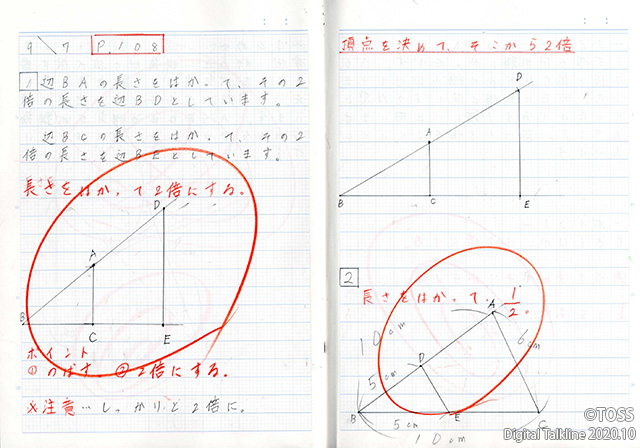 9 7 P.108
1 辺BAの長さをはかって、その2
倍の長さを辺BDとしています。
辺BCの長さをはかって、その2
倍の長さを辺BEとしています。
長さをはかって2倍にする。
D
A
B
C
E
ポイント
①のばす。②2倍にする。
※注意…しっかりと2倍に。
頂点を決めて、そこから2倍
D
A
B
C
E
2
長さをはかって、1/2。
A
10cm
6cm
D
5cm
B
E
C
5cm
10cm
©TOSS
Digital Talkline 2020.10